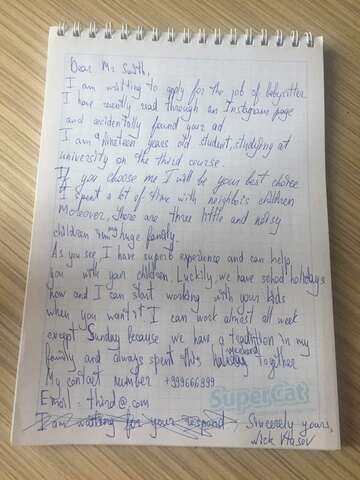 Dear Mr Smith,
I am writting to apply for the job of babysitter
I have recently read through an Instagram page
and accidentally found your ad.
I am a nineteen years old student, studying at
university on the third course.
If you choose me I will be your best choise
I spent a lot of time with neighbor's children
Moreover, there are three little and noisy
children in my huge family.
As you see, I have superb experience and can help
you with your children. Luckily, we have school holidays
now and I can start working with your kids
when you want. I can work almost all week
except Sunday because we have a tradition in my
family and always spent this weekend together
My contact number +999666999
Email: third@.com
SuperCat
I am waiting for your respond
Sincerely yours,
Nick